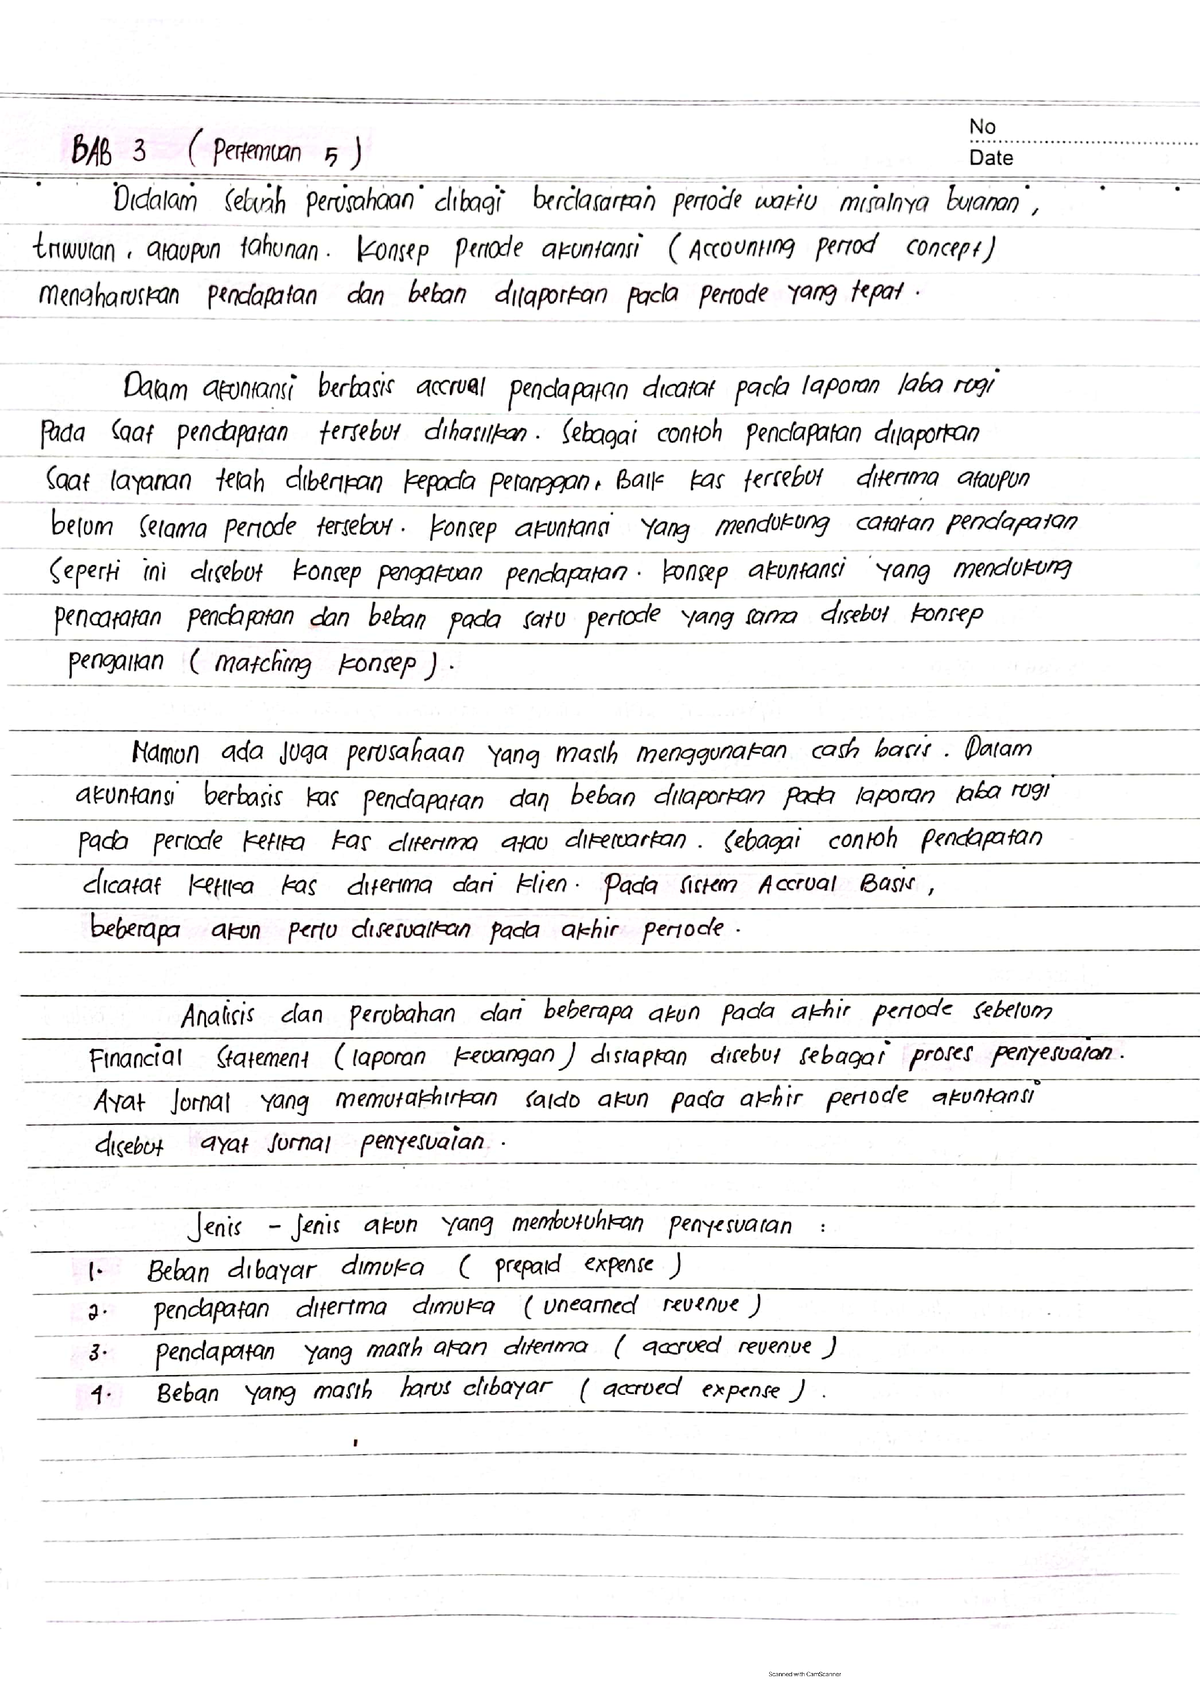 No
Date
BAB 3 ( Pertemuan 5 )
Didalam sebuah perusahaan dibagi berdasarkan periode waktu misalnya bulanan,
triwulan, ataupun tahunan. Konsep periode akuntansi ( Accounting period concept)
mengharuskan pendapatan dan beban dilaporkan pada periode yang tepat.
Dalam akuntansi berbasis accrual pendapatan dicatat pada laporan laba rugi
pada saat pendapatan tersebut dihasilkan. Sebagai contoh pendapatan dilaporkan
saat layanan telah diberikan kepada pelanggan, Baik kas tersebut diterima ataupun
belum selama periode tersebut. Konsep akuntansi yang mendukung catatan pendapatan
seperti ini disebut konsep pengakuan pendapatan. Konsep akuntansi yang mendukung
pencatatan pendapatan dan beban pada satu periode yang sama disebut konsep
pengaitan ( matching konsep ).
Namun ada juga perusahaan yang masih menggunakan cash basis. Dalam
akuntansi berbasis kas pendapatan dan beban dilaporkan pada laporan laba rugi
pada periode ketika kas diterima atau dikeluarkan. Sebagai contoh Pendapatan
dicatat ketika kas diterima dari klien. Pada sistem Accrual Basis,
beberapa akun perlu disesuaikan pada akhir periode.
Analisis dan perubahan dari beberapa akun pada akhir periode sebelum
Financial Statement ( laporan keuangan ) disiapkan disebut sebagai proses penyesuaian.
Ayat Jurnal yang memutakhirkan saldo akun pada akhir periode akuntansi
disebut ayat jurnal penyesuaian.
Jenis - jenis akun yang membutuhkan penyesuaian :
1. Beban dibayar dimuka ( prepaid expense )
2. pendapatan diterima dimuka ( unearned revenue )
3. pendapatan yang masih akan diterima ( accrued revenue )
4. Beban yang masih harus dibayar ( accrued expense ).
Scanned with CamScanner